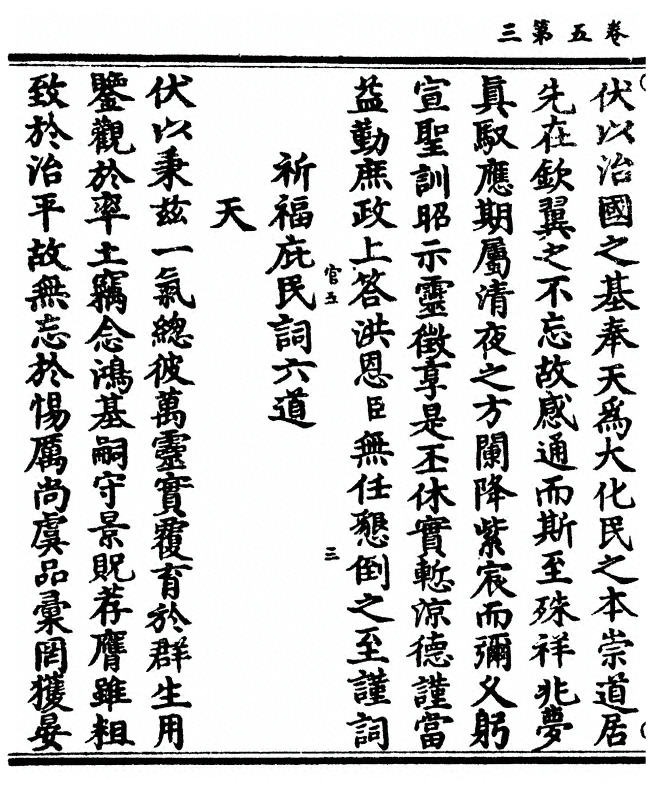 卷五第三
伏以治國之基奉天為大化民之本崇道居
先在欽翼之不忘故感通而斯至殊祥兆夢
真馭應期屬清夜之方闌降紫宸而彌久躬
宣聖訓昭示靈徵享是丕休實慙涼德謹當
益勤庶政上答洪恩臣無任懇倒之至謹詞
官五
三
祈福庇民詞六道
天
伏以秉茲一氣總彼萬靈實覆育於群生用
鑒觀於率土竊念鴻基嗣守景貺荐膺雖粗
致於治平故無忘於惕厲尚虞品彙罔獲晏